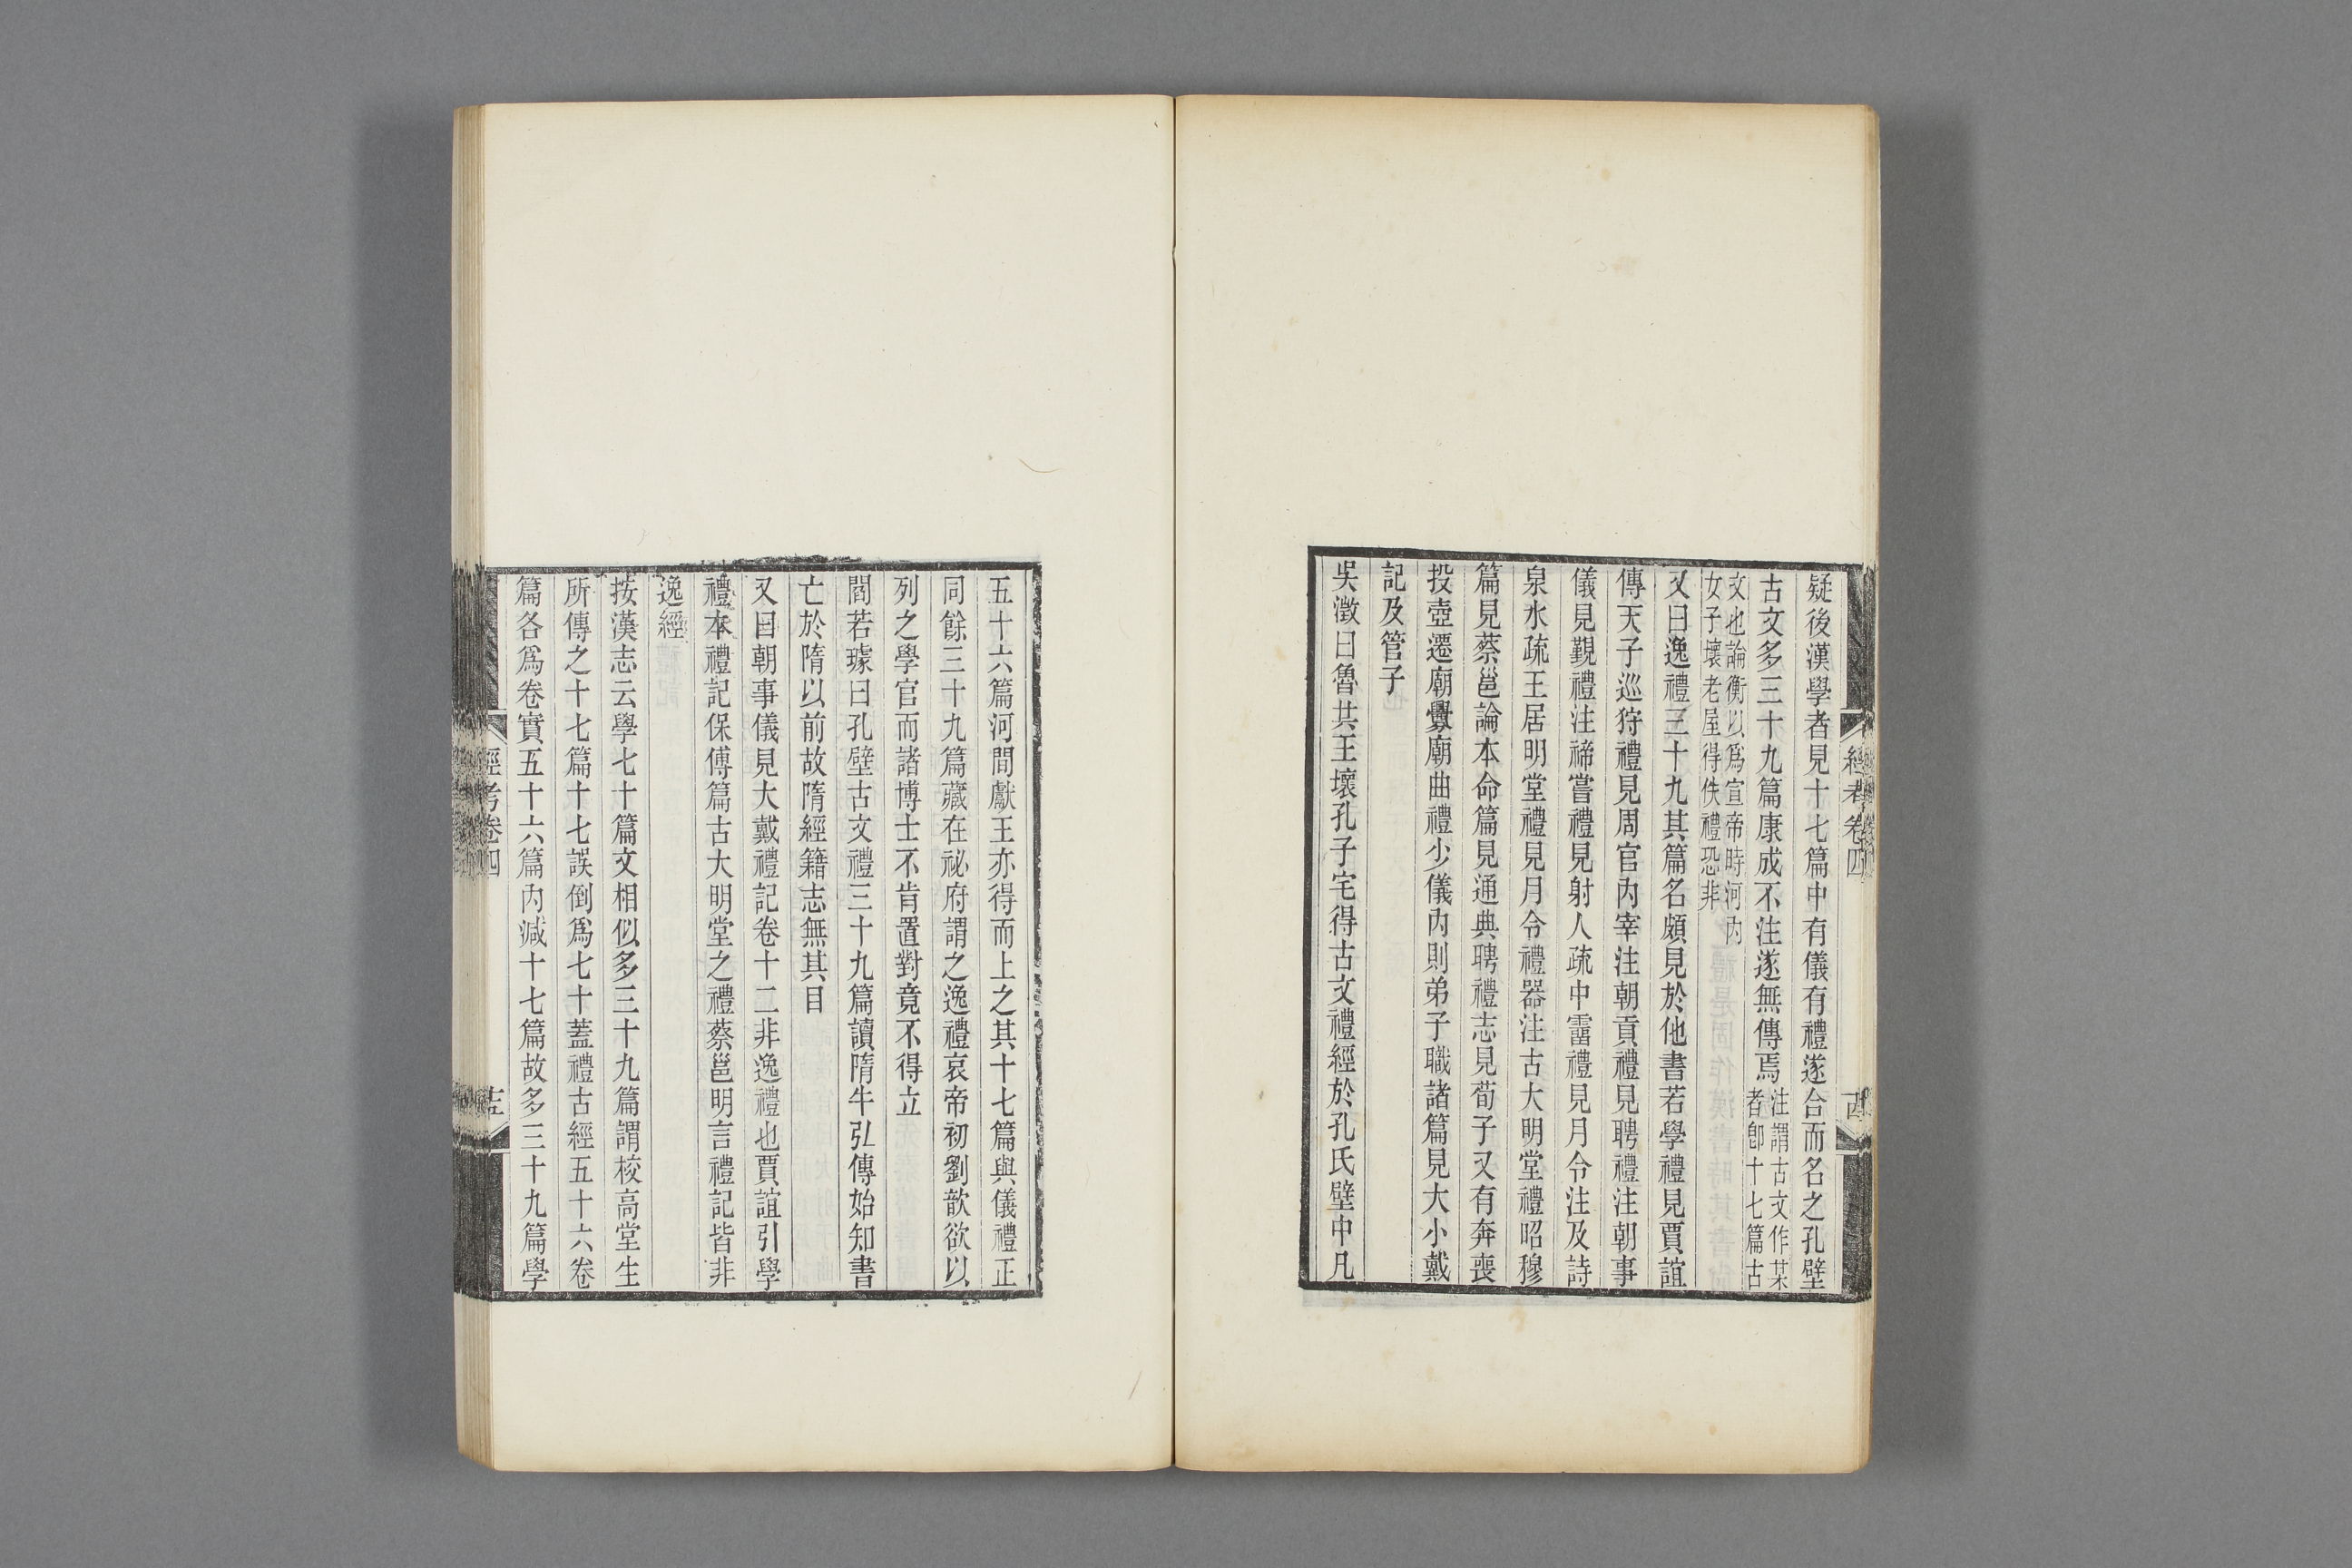 疑後漢學者見十七篇中有儀有禮遂合而名之孔壁
古文多三十九篇康成不注遂無傳焉注謂古文作某者卽十七篇古
文也論衡以爲宣帝時河內女子壞老屋得佚禮恐非
又曰逸禮三十九其篇名頗見於他書若學禮見賈誼
傳天子巡狩禮見周官內宰注朝貢禮見聘禮注朝事
儀見覲禮注禘嘗禮見射人疏中霤禮見月令注及詩
泉水疏王居明堂禮見月令禮器注古大明堂禮昭穆
篇見蔡邕論本命篇見通典聘禮志見荀子又有奔喪
投壺遷廟釁廟曲禮少儀內則弟子職諸篇見大小戴
記及管子
吳澂曰魯共王壞孔子宅得古文禮經於孔氏壁中凡
經考卷四
五十六篇河間獻王亦得而上之其十七篇與儀禮正
同餘三十九篇藏在祕府謂之逸禮哀帝初劉歆欲以
列之學官而諸博士不肯置對竟不得立
閻若璩曰孔壁古文禮三十九篇讀隋牛弘傳始知書
亡於隋以前故隋經籍志無其目
又曰朝事儀見大戴禮記卷十二非逸禮也賈誼引學
禮本禮記保傅篇古大明堂之禮蔡邕明言禮記皆非
逸經
按漢志云學七十篇文相似多三十九篇謂校高堂生
所傳之十七篇十七誤倒爲七十蓋禮古經五十六卷
篇各爲卷實五十六篇內減十七篇故多三十九篇學
經考卷四